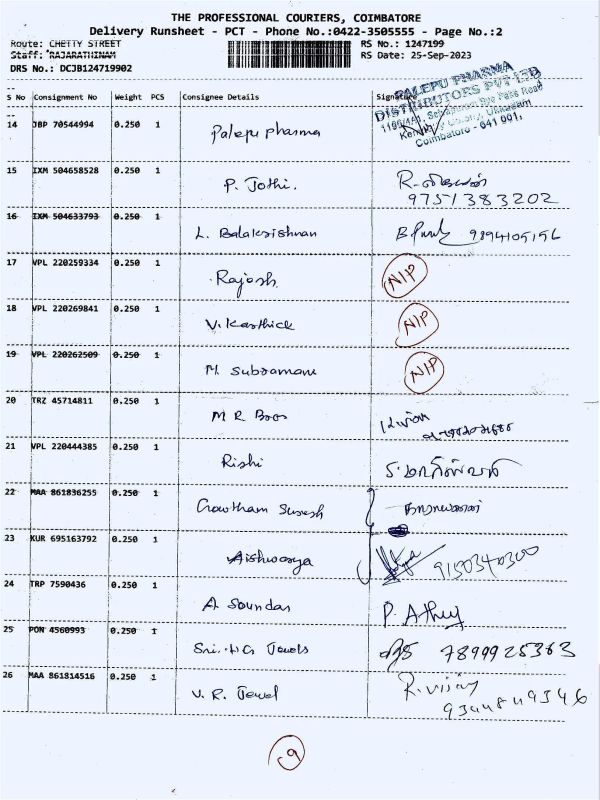 THE PROFESSIONAL COURIERS, COIMBATORE
Delivery Runsheet - PCT - Phone No.:0422-3505555 - Page No.:2
Route: CHETTY STREET RS No.: 1247199
Staff: RAJARATHINAM RS Date: 25-Sep-2023
DRS No.: DCJB124719902
PALEPU PHARMA
DISTRIBUTORS PVT LTD
Coimbatore - 641 001.
S No Consignment No Weight PCS Consignee Details Signature
14 JBP 70544994 0.250 1 Palepu pharma
15 IXM 504658528 0.250 1 P. Jothi.
9751383202
16 IXM 504633793 0.250 1 L. Balakrishnan 9894105156
17 VPL 220259334 0.250 1 Rajesh N/P
18 VPL 220269841 0.250 1 V. Karthick N/P
19 VPL 220262509 0.250 1 M. Subramani N/P
20 TRZ 45714811 0.250 1 M R Bros
21 VPL 220444385 0.250 1 Rishi
22 MAA 861836255 0.250 1 Gowtham Suresh நாராயணன்
23 KUR 695163792 0.250 1 Aishwarya 9150340300
24 TRP 7590436 0.250 1 A. Soundar
25 PON 4560993 0.250 1 Jewels 7899925363
26 MAA 861814516 0.250 1 V. R. Jewel R. Vijay
9344849346
9